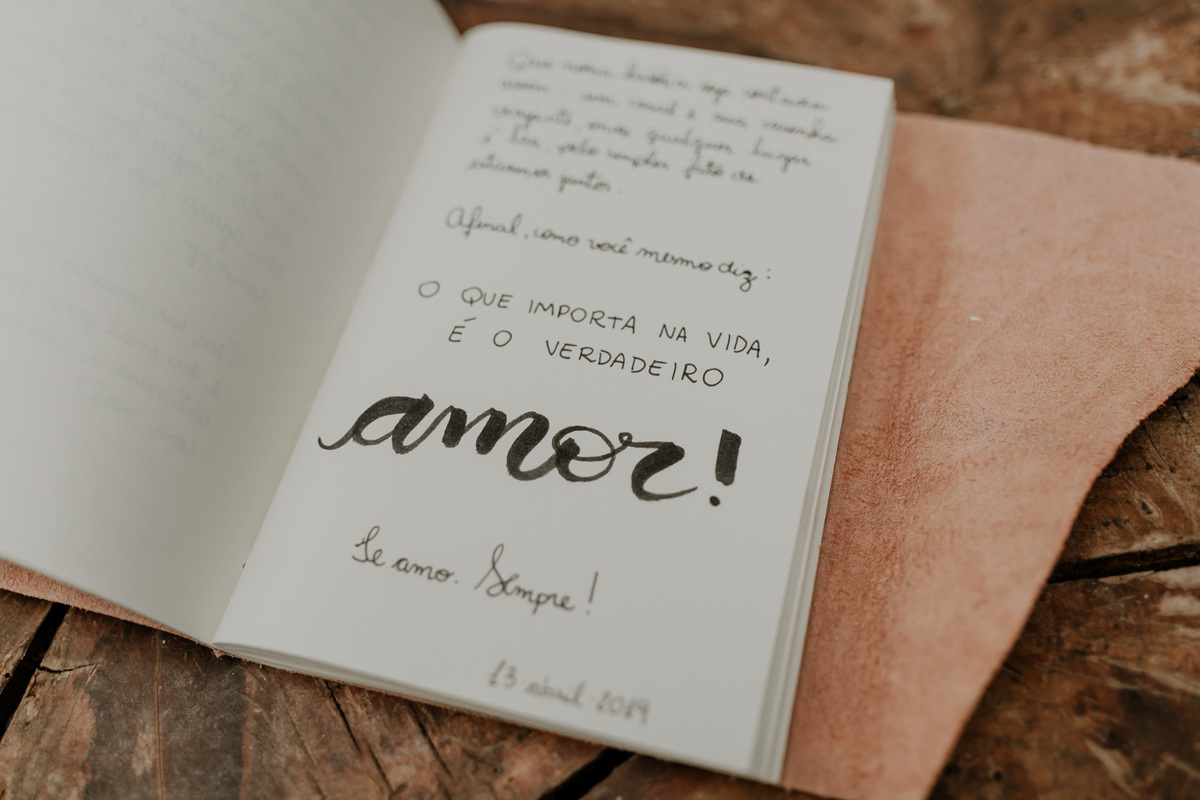 Que nossa história seja contada
assim: um casal e sua
conquista, onde qualquer lugar
é lar, pelo simples fato de
estarmos juntos.
Afinal, como você mesmo diz:
O QUE IMPORTA NA VIDA,
É O VERDADEIRO
amor!
Te amo. Sempre!
13 abril 2019